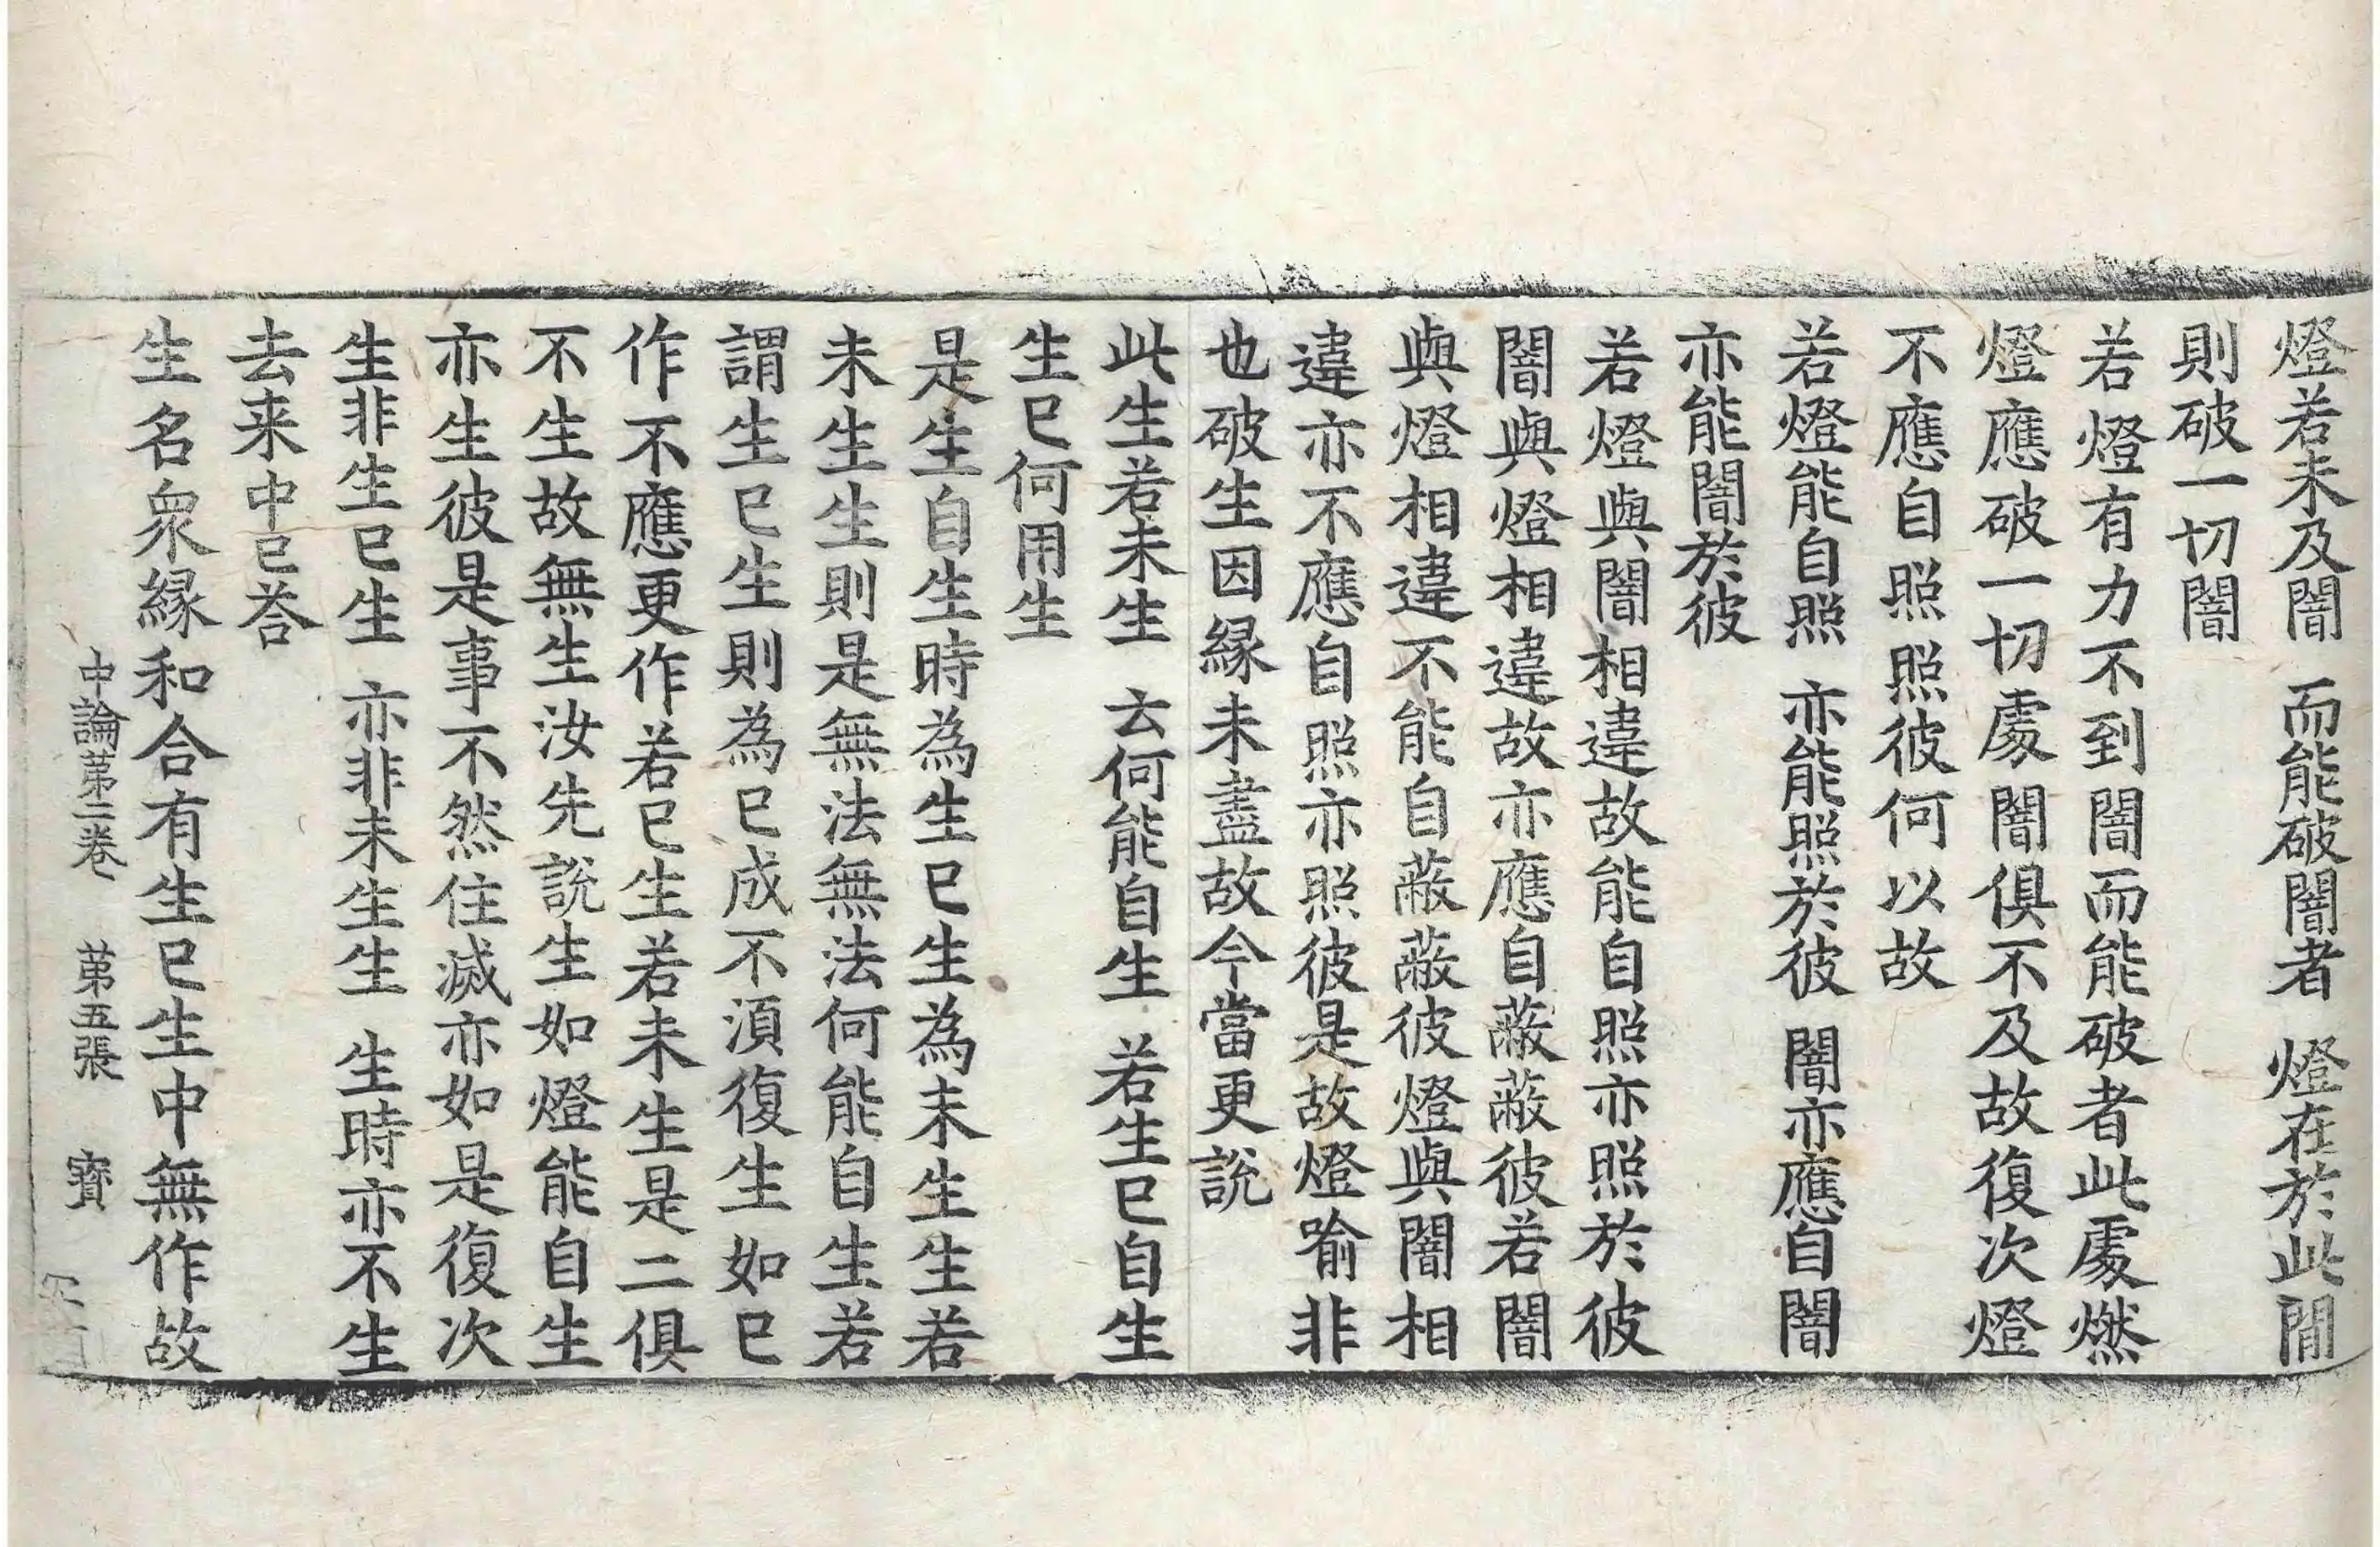 燈若未及闇　而能破闇者　燈在於此間
則破一切闇
若燈有力不到闇而能破者此處燃
燈應破一切處闇俱不及故復次燈
不應自照照彼何以故
若燈能自照　亦能照於彼　闇亦應自闇
亦能闇於彼
若燈與闇相違故能自照亦照於彼
闇與燈相違故亦應自蔽蔽彼若闇
與燈相違不能自蔽蔽彼燈與闇相
違亦不應自照亦照彼是故燈喻非
也破生因緣未盡故今當更說
此生若未生　云何能自生　若生已自生
生已何用生
是生自生時為生已生為未生生若
未生生則是無法無法何能自生若
謂生已生則為已成不須復生如已
作不應更作若已生若未生是二俱
不生故無生汝先說生如燈能自生
亦生彼是事不然住滅亦如是復次
生非生已生　亦非未生生　生時亦不生
去来中已荅
生名眾緣和合有生已生中無作故
中論第二卷　第五張　寶